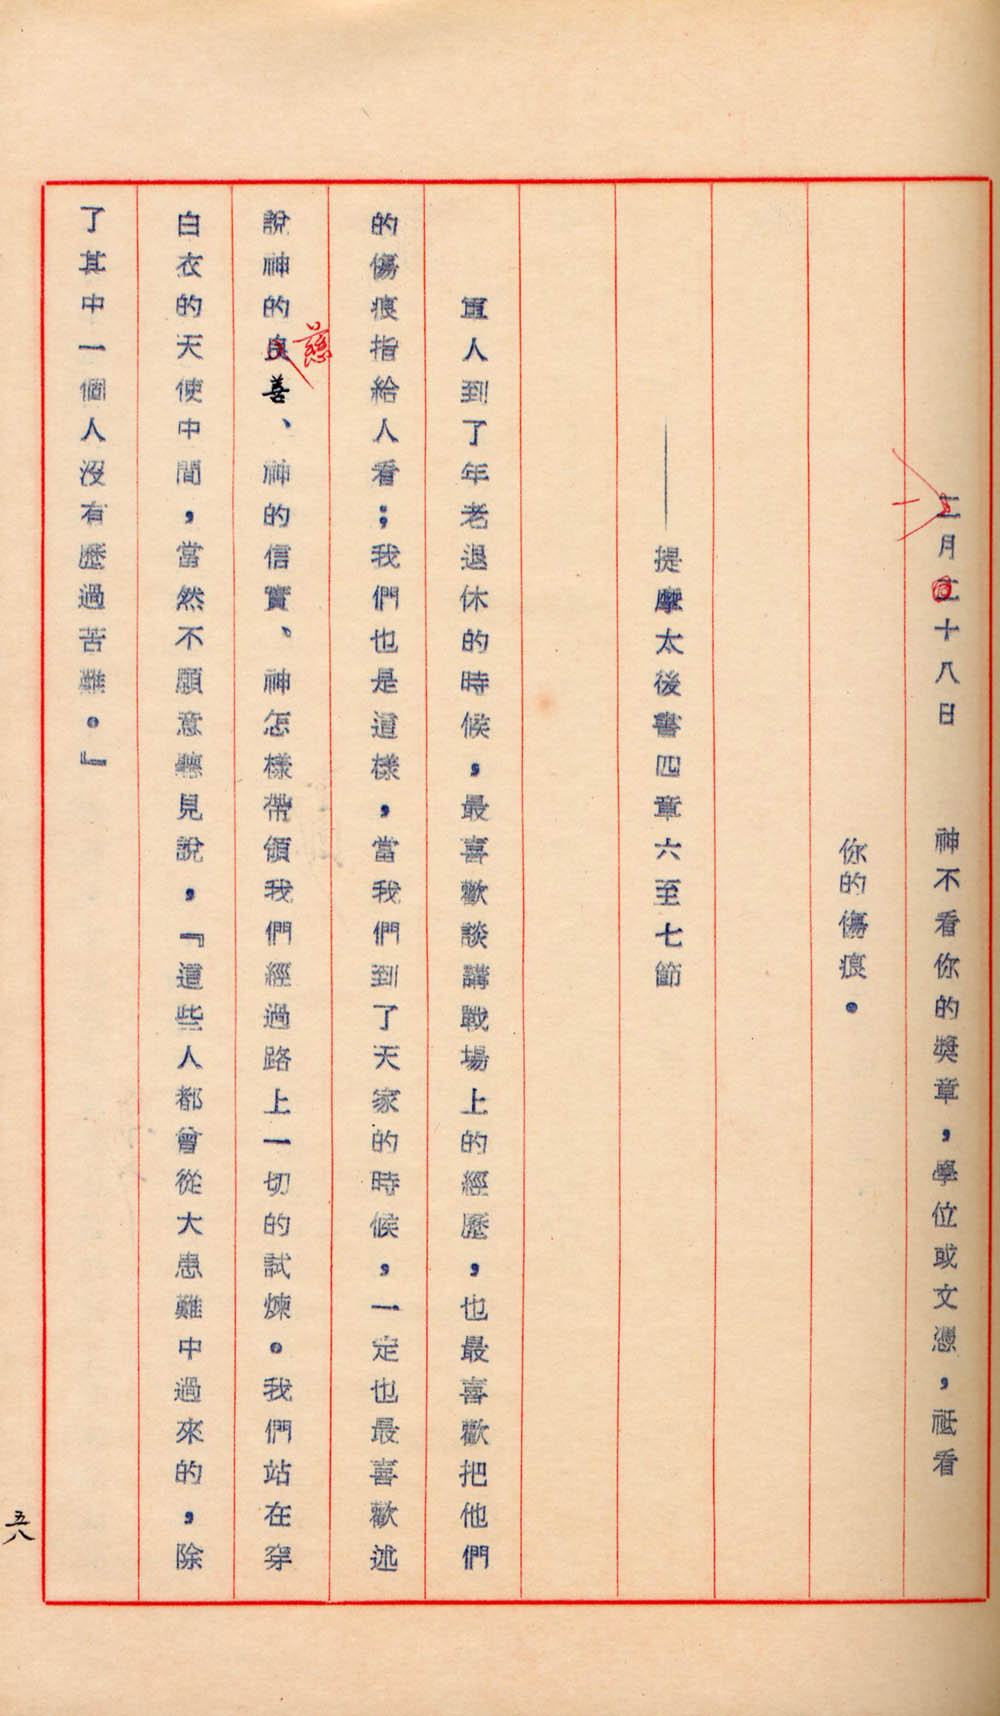 二月二十八日　　神不看你的獎章，學位或文憑，祗看
你的傷痕。
——提摩太後書四章六至七節
軍人到了年老退休的時候，最喜歡談講戰場上的經歷，也最喜歡把他們
的傷痕指給人看；我們也是這樣，當我們到了天家的時候，一定也最喜歡述
說神的良善、神的信實、神怎樣帶領我們經過路上一切的試煉。我們站在穿
慈
白衣的天使中間，當然不願意聽見說，『這些人都曾從大患難中過來的，除
了其中一個人沒有歷過苦難。』
五八